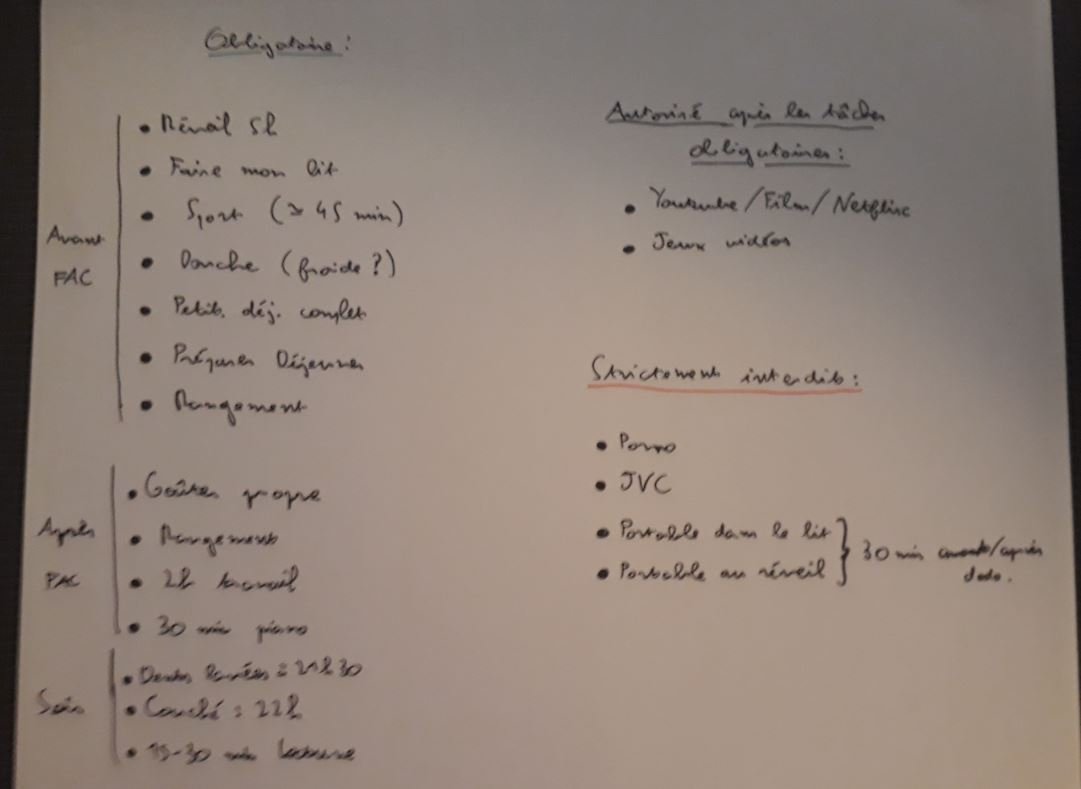 Obligatoire :
Avant
FAC
• Réveil 5h
• Faire mon lit
• Sport (≃ 45 min)
• Douche (froide ?)
• Petit. déj. complet
• Préparer Déjeuner
• Rangement
Après
FAC
• Goûter propre
• Rangement
• 2h travail
• 30 min piano
Soir
• Dents lavées : 21h30
• Couché : 22h
• 15-30 min lecture
Autorisé après les tâches
obligatoires :
• Youtube/Film/Netflix
• Jeux vidéos
Strictement interdit :
• Porno
• JVC
• Portable dans le lit
• Portable au réveil
30 min avant/après
dodo.